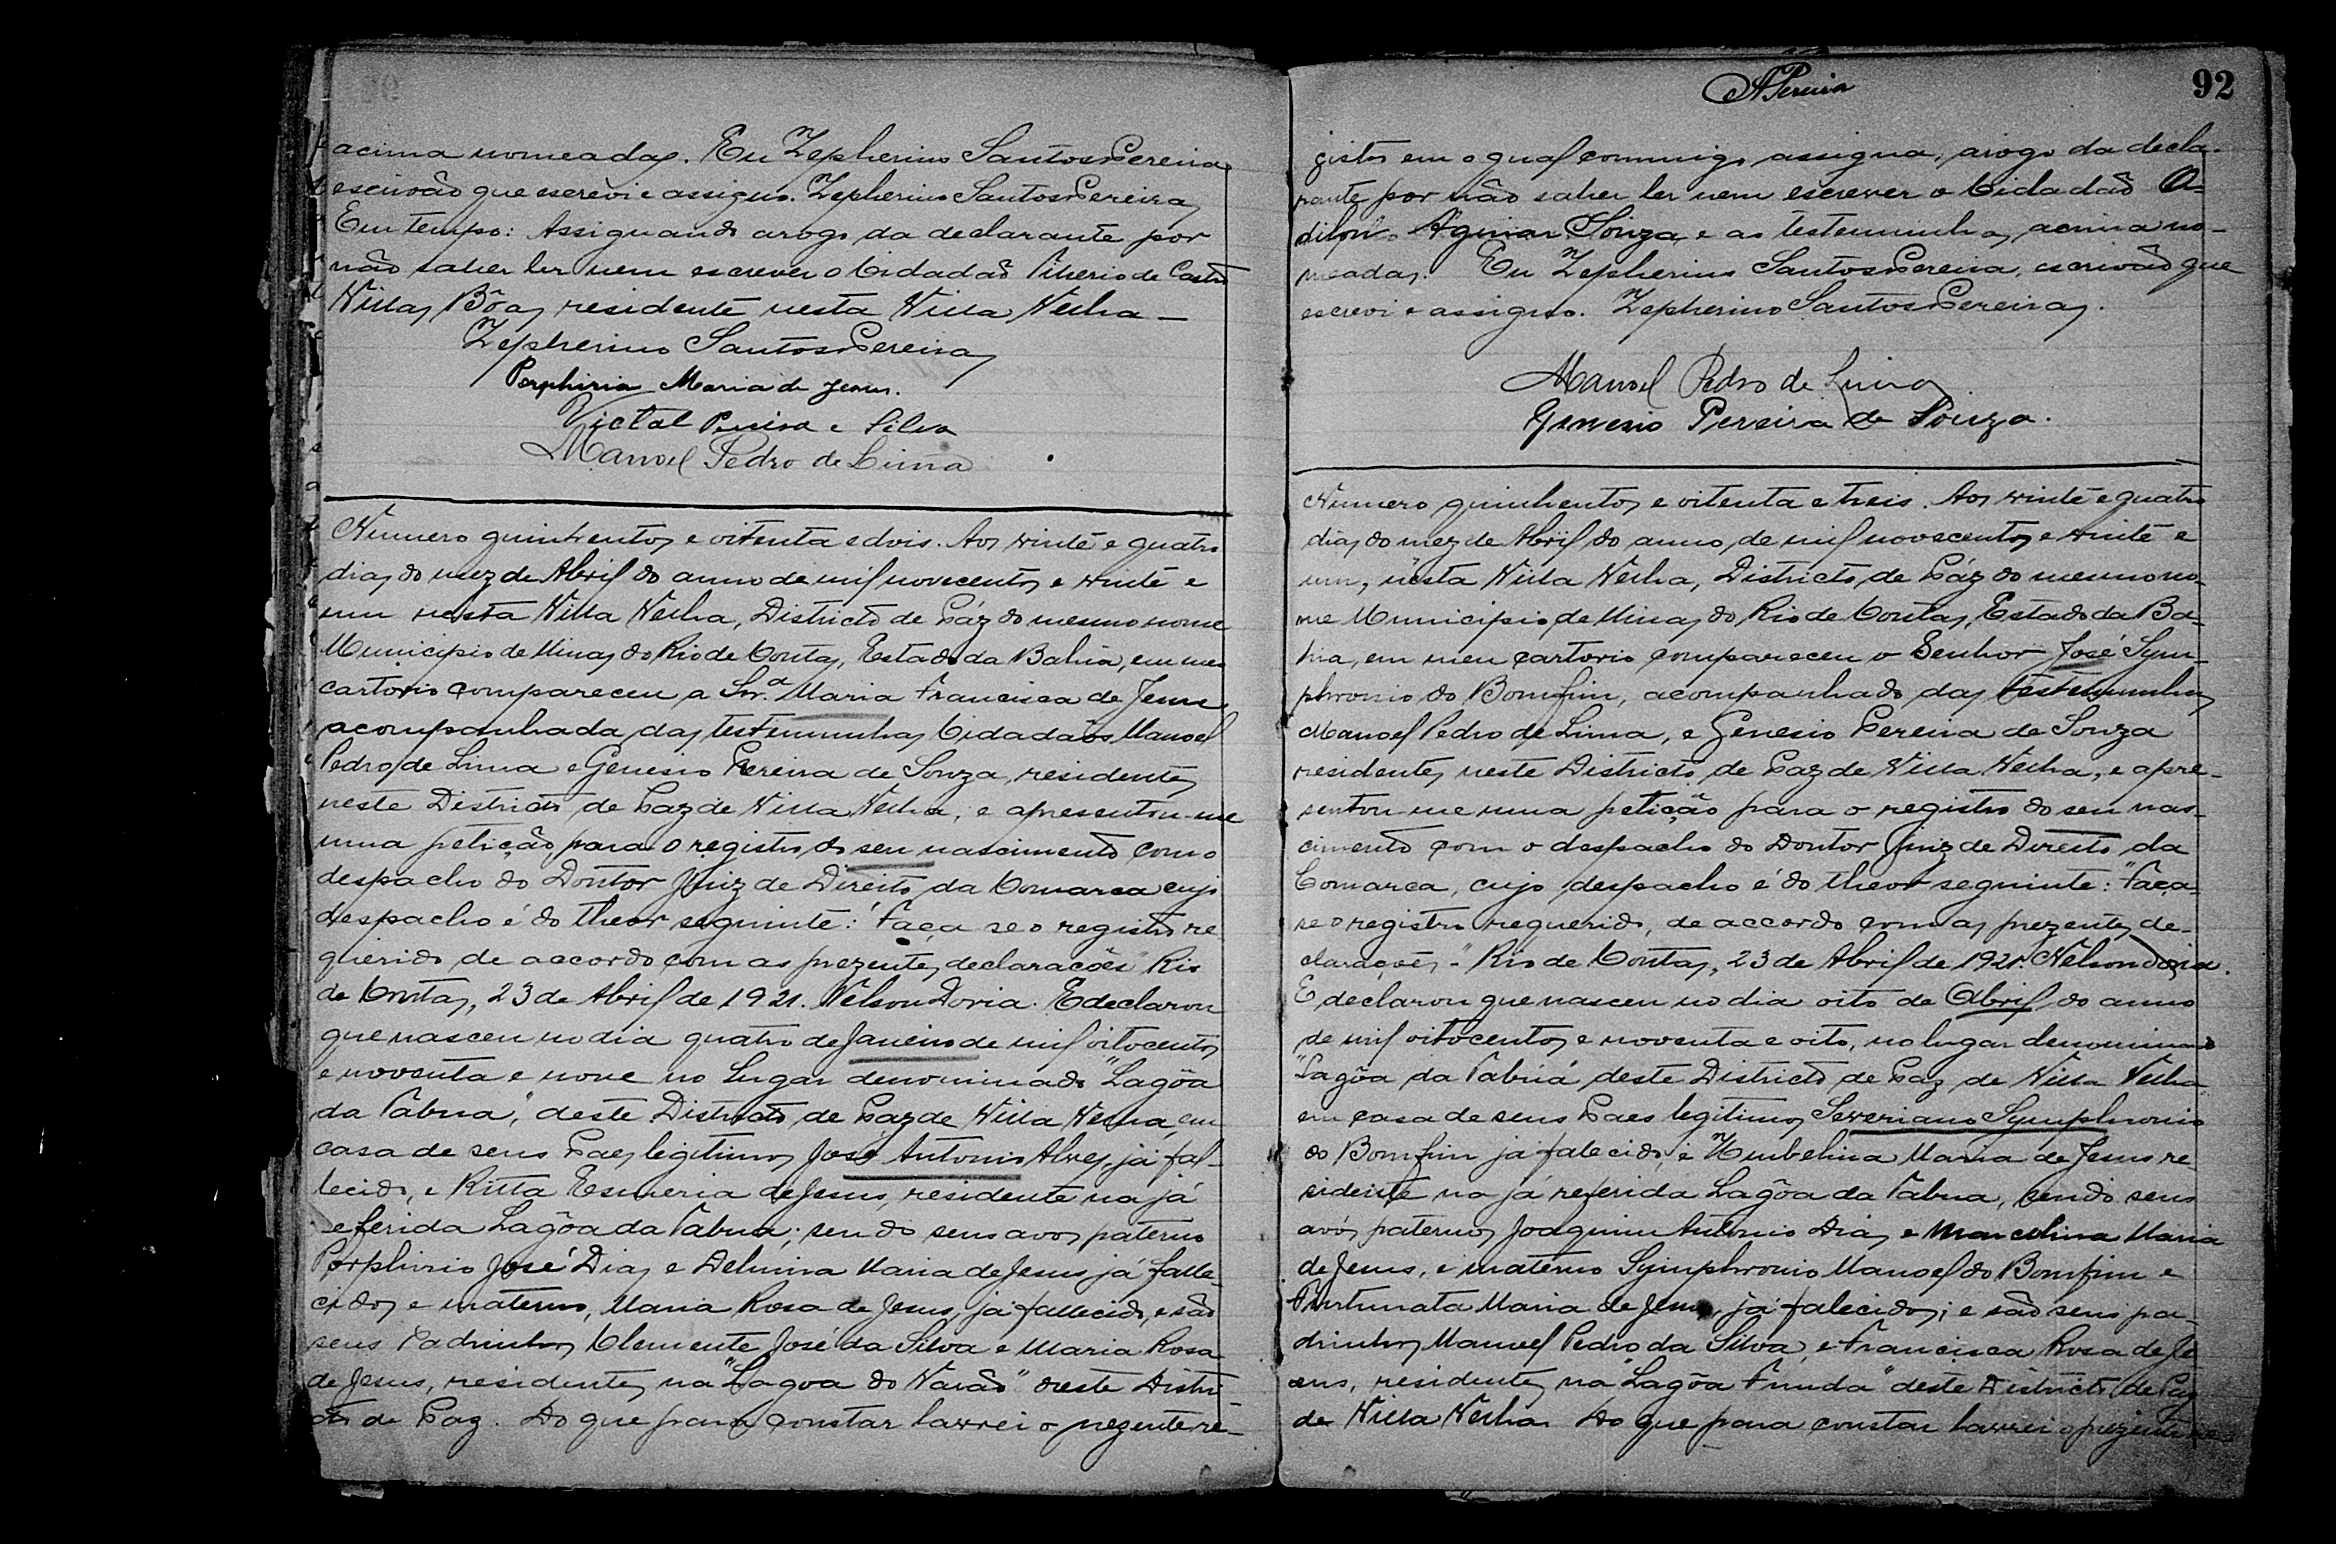 acima nomeadas. Eu Zepherino Santos Pereira
escrivão que escrevi e assigno. Zepherino Santos Pereira
Em tempo: Assignando arogo da declarante por
não saber ler nem escrever o Cidadaõ Tiberio de Castro
Villas Bôas residente nesta Villa Velha —
Zepherino Santos Pereira
Porphiria Maria de Jesus.
Victal Pereira e Silva
Manoel Pedro de Lima
Numero quinhentos e oitenta e dois. Aos vinte e quatro
dias do mez de Abril do anno de mil novecentos e vinte e
um nesta Villa Velha, Districto de Páz do mesmo nome
Municipio de Minas do Rio de Contas, Estado da Bahia, em meu
cartorio compareceu a Snr.a Maria Francisca de Jesus
acompanhada das testemunhas Cidadãos Manoel
Pedro de Lima e Genesio Pereira de Souza, residentes
neste Districto de Paz de Villa Velha, e apresentou-me
uma petição para o registro do seu nascimento com o
despacho do Doutor Juiz de Direito da Comarca cujo
despacho é do theor seguinte: "Faça se o registro re
querido de accordo com as prezentes declaracões" Rio
de Contas, 23 de Abril de 1921. Nelson Doria. E declarou
que nasceu no dia quatro de Janeiro de mil oitocentos
e noventa e nove no Lugar denominado "Lagôa
da Tabua", deste Districto de Paz de Villa Velha, em
casa de seus Paes legitimos José Antonio Alves, já fal-
lecido, e Ritta Esmeria de Jesus, residente na já
referida Lagôa da Tabua; sendo seus avos paterno
Porphirio José Dias e Delmira Maria de Jesus já falle-
cidos e materno, Maria Rosa de Jesus, já fallecido, e são
seus Padrinhos Clemente José da Silva e Maria Rosa
de Jesus, residentes na "Lagoa do Varão" deste Distri
cto de Paz. Do que para constar lavrei o prezente re-
APereira
92
gistro em o qual commigo assigna, arogo da decla-
rante por não saber ler nem escrever o Cidadaõ O-
dilon Aguiar Souza, e as testemunhas acima no-
meadas. Eu Zepherino Santos Pereira, escrivão que
escrevi e assigno. Zepherino Santos Pereira.
Manoel Pedro de Lima
Genesio Pereira de Souza.
Numero quinhentos e oitenta e treis. Aos vinte e quatro
dias do mez de Abril do anno de mil novecentos e vinte e
um, nesta Villa Velha, Districto de Páz do mesmo no-
me Municipio de Minas do Rio de Contas, Estado da Ba-
hia, em meu cartorio compareceu o Senhor José Sym-
phronio do Bomfim, acompanhado das testemunhas
Manoel Pedro de Lima, e Genesio Pereira de Souza
residentes neste Districto de Paz de Villa Velha, e apre-
sentou me uma petição para o registro do seu nas-
cimento com o despacho do Doutor Juiz de Direito da
Comarca, cujo despacho é do theor seguinte: "Faça-
se o registro requerido, de accordo com as prezentes de-
clarações" - Rio de Contas, 23 de Abril de 1921. Nelson Doria.
E declarou que nasceu no dia oito de Abril do anno
de mil oitocentos e noventa e oito, no lugar denominado
"Lagôa da Tabua" deste Districto de Paz de Villa Velha
em casa de seus Paes legitimos Severiano Symphronio
do Bomfim já falecido, e Umbelina Maria de Jesus re
sidente na já referida Lagôa da Tabua, sendo seus
avós paternos Joaquim Antonio Dias e Marcolina Maria
de Jesus, e materno Symphronio Manoel do Bomfim e
Furtunata Maria de Jesus, já falecidos; e são seus pa-
drinhos Manoel Pedro da Silva, e Francisca Rosa de Je
sus, residentes na "Lagôa Funda" deste Districto de Paz
de Villa Velha. Do que para constar lavrei o prezente re